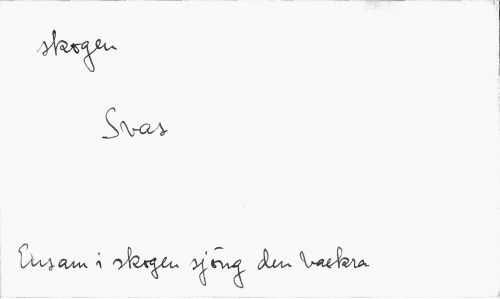 skogen
Svas
Ensam i skogen sjöng den vackra